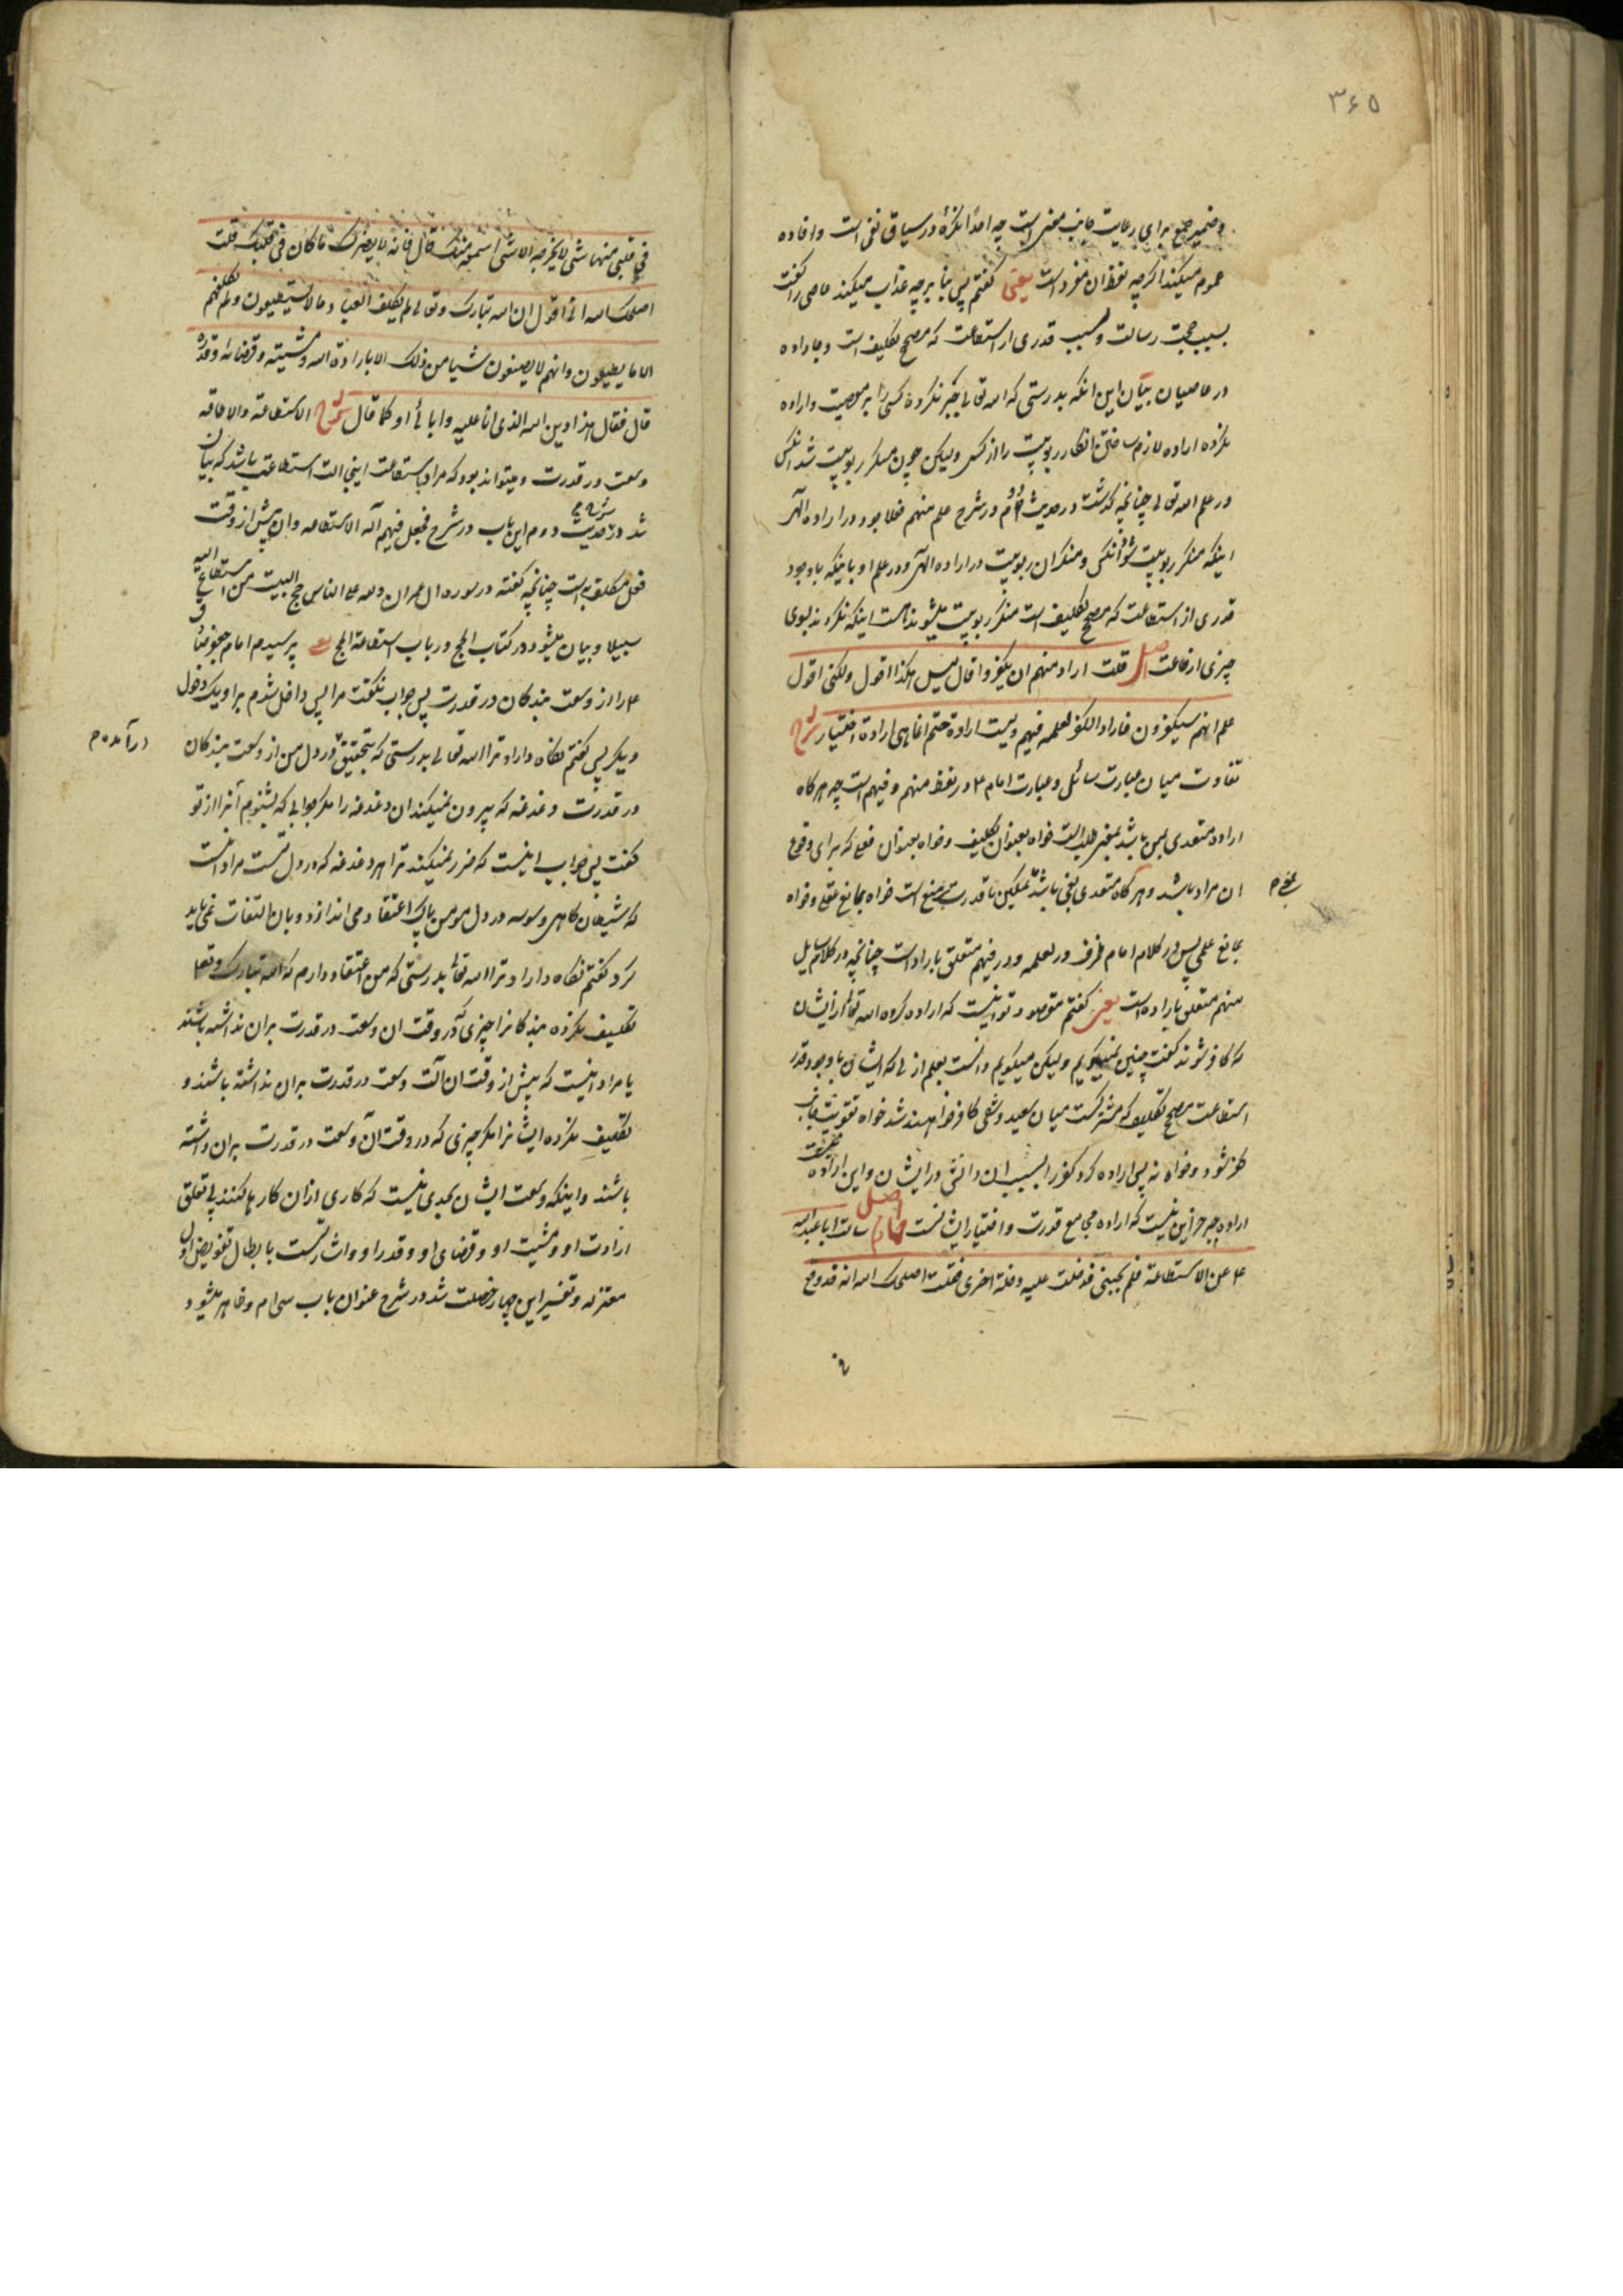 ۳۶۵
و ضمیر جمع برای رعایت جانب معنی است چه احدا نکره در سیاق نفی است و افاده
عموم میکند اگرچه لفظ ان مفرد است یعنی گفتم پس بنا بر چه عذاب میکند عاصی را گفت
بسبب حجت رسالت و بسبب قدری از استطاعت که مصحح تکلیف است و جا داده
در عاصیان بیان این انکه بدرستی که الله تعالی جبر نکرده کسی را بر معصیت و اراده
نکرده اراده لازم ساختن انکار ربوبیت را از کس ولیکن چون منکر ربوبیت شد انکس
در علم الله تعالی چنانچه گذشت در حدیث دوم در شرح علم منهم فعلا بود در اراده الهی
اینکه منکر ربوبیت شود انکس و منکران ربوبیت در اراده الهی و در علم او باینکه باوجود
قدری از استطاعت که مصحح تکلیف است منکر ربوبیت میشوند هست اینکه نکروند بسوی
چیزی از طاعت اصل قلت اراد منهم ان یکفروا قال لیس هکذا اقول ولکنی اقول
علم انهم سیکفرون فاراد الکفر لعلمه فیهم ولیست ارادة حتم انما هی ارادة اختیار شرح
تفاوت میان عبارت سائل و عبارت امام ع در لفظ منهم و فیهم است چه هر گاه
اراده متعدی بمن باشد بمعنی طلب است خواه بعنوان تکلیف و خواه بعنوان فعلی که برای وقوع
ان مراد باشد و هر گاه متعدی بفی باشد تمکین با قدرت بر منع است خواه بمانع عقلی و خواه
بمعنی م
بمانع علمی پس در کلام امام ظرف در لعلمه و در فیهم متعلق باراد است چنانچه در کلام سایل
منهم متعلق باراده است یعنی گفتم مقصود تو اینست که اراده کرده الله تعالی از ایشان
که کافر شوند گفت چنین نمیگویم ولیکن میگویم دانست بعلم ازلی که ایشان باوجود قدر
استطاعت مصحح تکلیف که مشترکست میان سعید و شقی کافر خواهند شد خواه تقویت جانب
کفر شود و خواه نه پس اراده کرد کفر را بسبب ان دانش در ایشان و این اراده
اراده جبر نیست جز این نیست که اراده مجامع قدرت و اختیار ایشانست اصل سالت ابا عبدالله
ع عن الاستطاعة فلم یجبنی فدخلت علیه دخلة اخری فقلت اصلحک الله انه قد وقع
فی قلبی منها شی لا یخرجه الا شی اسمعه منک قال فانه لا یضرک ما کان فی قلبک قلت
اصلحک الله انی اقول ان الله تبارک و تعالی لم یکلف العباد ما لا یستطیعون ولم یکلفهم
الا ما یطیقون وانهم لا یصنعون شیا من ذلک الا بارادة الله ومشیته وقضائه وقدره
قال فقال هذا دین الله الذی انا علیه وابائی او کما قال شرح الاستطاعة والاطاقه
وسعت در قدرت و میتواند بود که مراد باستطاعت اینجا الت استطاعت باشد که بیان
شد در حدیث دوم این باب در شرح فجعل فیهم آلة الاستطاعه و ان پیش از وقت
فعل مکلف به است چنانچه گفته در سوره ال عمران ولله علی الناس حج البیت من استطاع الیه
سبیلا و بیان میشود در کتاب الحج در باب استطاعة الحج یعنی پرسیدم امام جعفر صادق
ع را از وسعت بندکان در قدرت پس جواب نگفت مرا پس داخل شدم بر او یک دخول
دیگر پس گفتم نگاه داراد ترا الله تعالی بدرستی که بتحقیق در دل من از وسعت بندکان
درآمده م
در قدرت دغدغه که بیرون نمیکند ان دغدغه را مگر جوابی که بشنوم آنرا از تو
گفت پس جواب اینست که ضرر نمیکند ترا هر دغدغه که در دل تست مراد اینست
که شیطان گاهی وسوسه در دل مومن پاک اعتقاد می اندازد و بان التفات نمی باید
کرد گفتم نگاه داراد ترا الله تعالی بدرستی که من اعتقاد دارم که الله تبارک وتعالی
تکلیف نکرده بندکانرا چیزی که در وقت ان وسعت در قدرت بران نداشته باشند
یا مراد اینست که پیش از وقت ان آلت وسعت در قدرت بران نداشته باشند و
تکلیف نکرده ایشانرا مگر چیزی که در وقت آن وسعت در قدرت بران داشته
باشند و اینکه وسعت ایشان بحدی نیست که کاری ازان کارها کنند بی تعلق
ارادت او و مشیت او و قضای او و قدر او و اشارتست بابطال تفویض اول
معتزله و تفسیر این چهار خصلت شد در شرح عنوان باب سی ام و ظاهر میشود